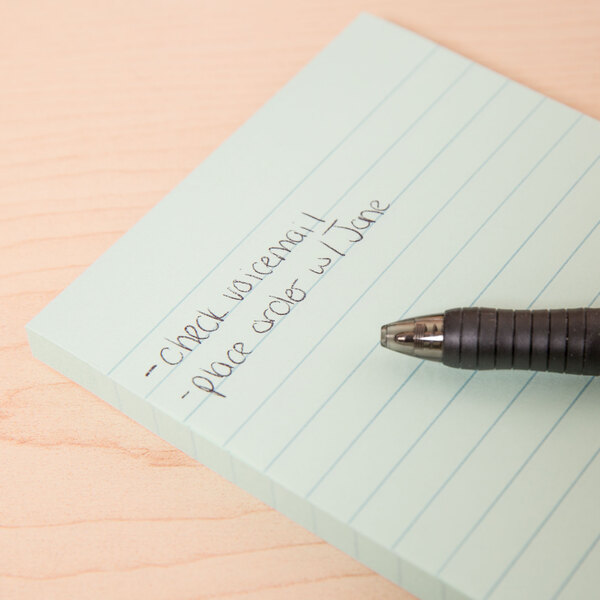 - check voicemail
- place order w/ Jane